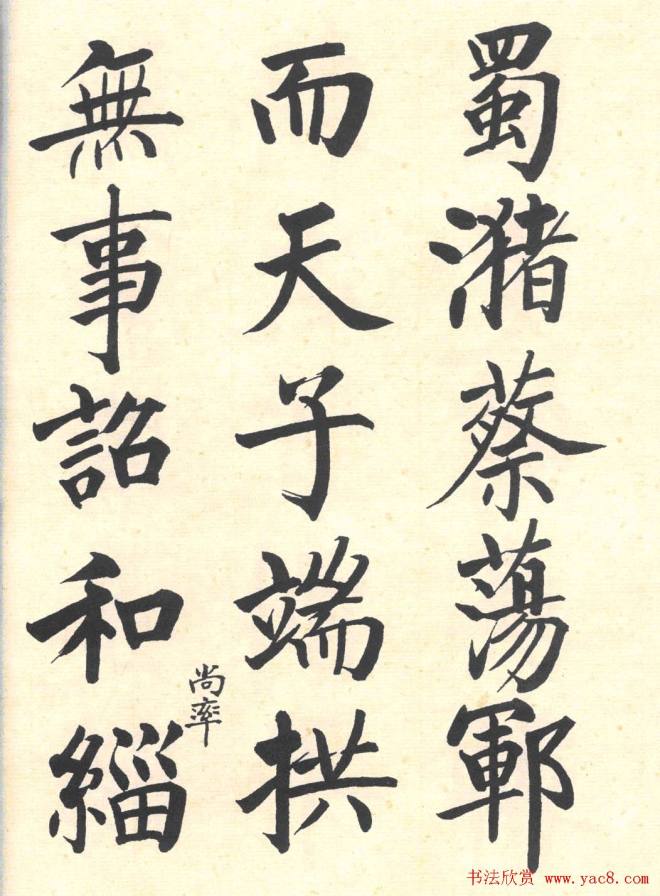 蜀潴蔡蕩鄆
而天子端拱
無事詔和緇
尚率
书法欣赏 www.yac8.com